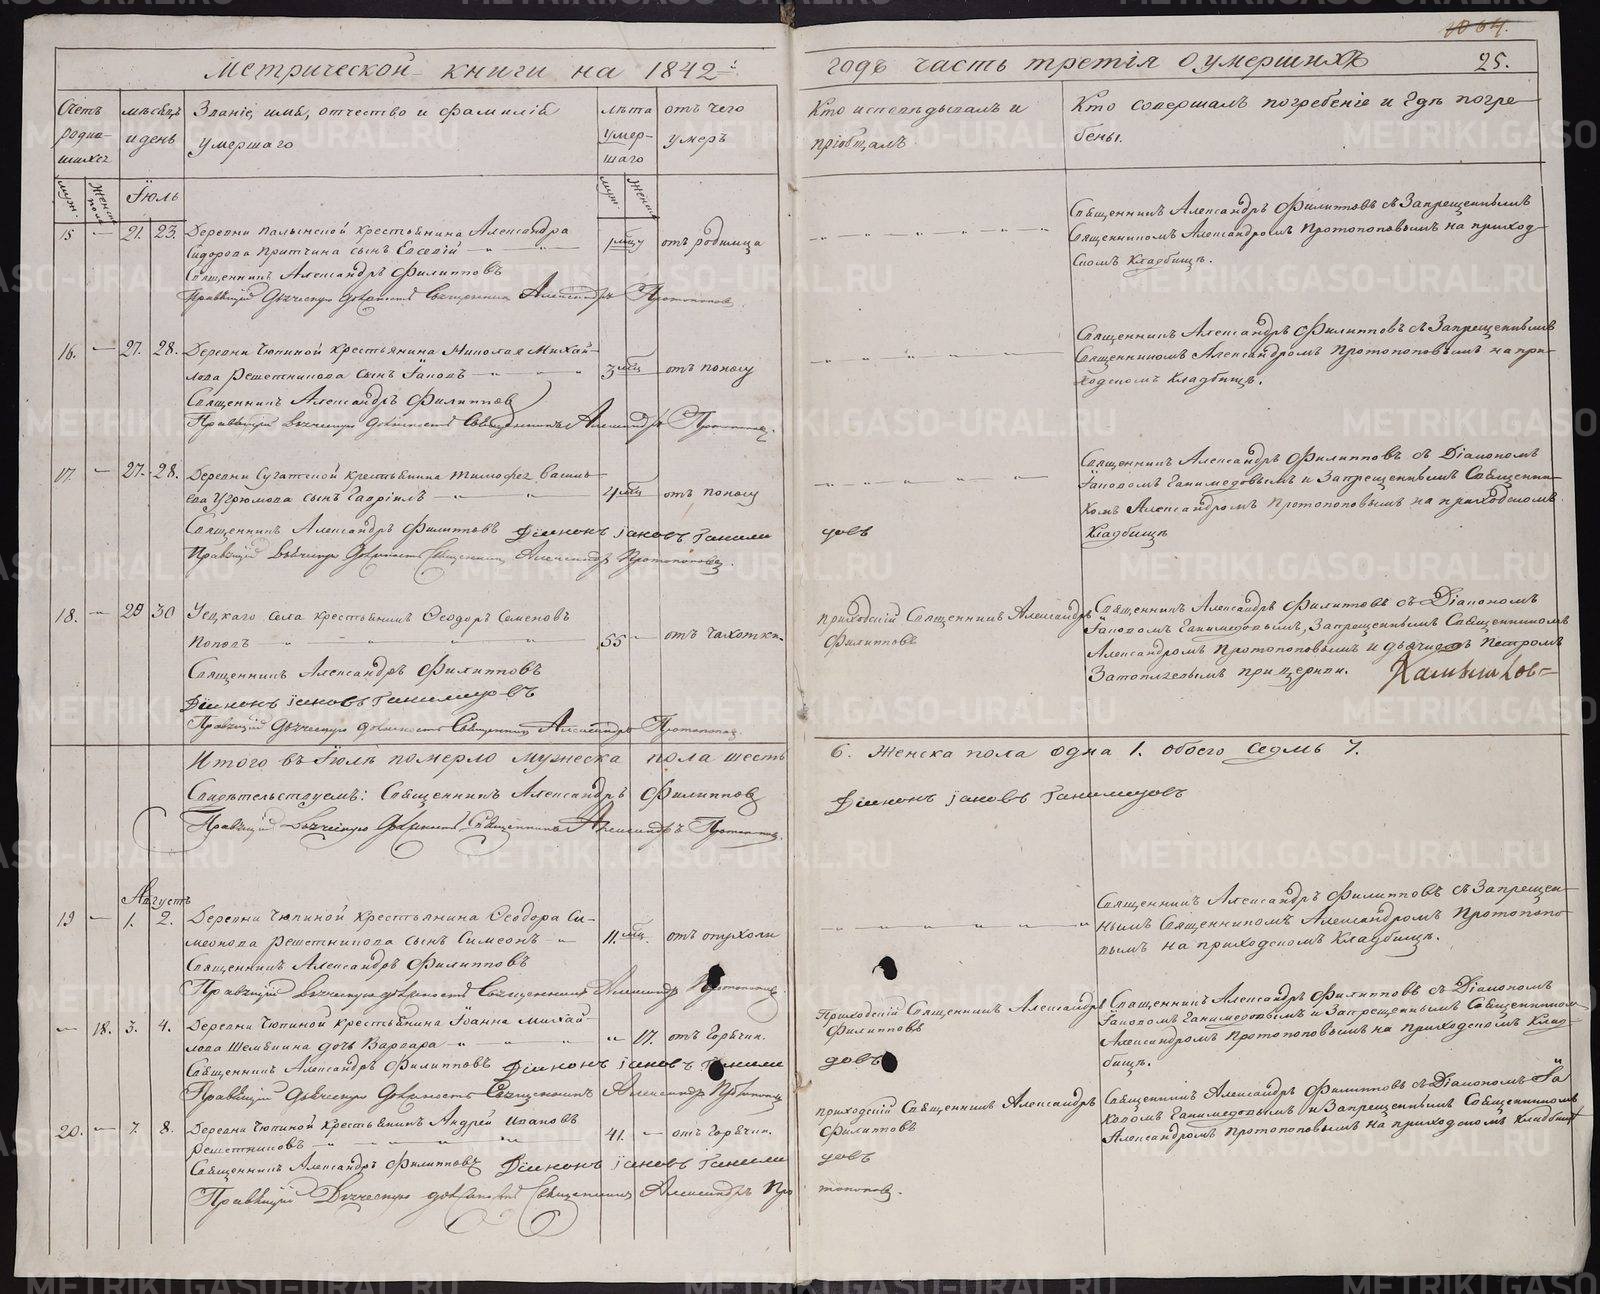 1064.
Метрической книги на 1842й годъ часть третія о умершихъ 25.
Счетъ родив-шихся
муж. женск. пола
мѣсяцъ и день
Званіе, имя, отчество и фамилія умершаго
лѣта умер-шаго
муж. женск.
отъ чего умеръ
Кто исповѣдывалъ и пріобщалъ
Кто совершалъ погребеніе и гдѣ погре-
бены.
Іюль
15 — 21. 23. Деревни Крестьянина Александра
Сидорова Притчина сынъ Евсевій 1 мцу отъ родимца
Священникъ Александръ Филипповъ
Правящій дьяческую должность Священникъ Александръ Протопопов
Священникъ Александръ Филипповъ съ Запрещеннымъ
Священникомъ Александромъ Протопоповымъ на приход-
скомъ Кладбищѣ.
16. — 27. 28. Деревни Чюпиной Крестьянина Николая Михай-
лова Решетникова сынъ Іаковъ 3 мц отъ поносу
Священникъ Александръ Филиппов
Правящій дьяческую должность Священникъ Александръ Протопопов.
Священникъ Александръ Филипповъ съ Запрещеннымъ
Священникомъ Александромъ Протопоповымъ на при-
ходскомъ Кладбищѣ.
17. — 27. 28. Деревни Сугатской Крестьянина Тимофея Василь-
ева Угрюмова сынъ Гавріилъ 4 мц отъ поносу
Священникъ Александръ Филипповъ Діаконъ Іаковъ Ганиме
довъ
Правящій дьяческую должность Священникъ Александръ Протопопов.
Священникъ Александръ Филипповъ съ Діакономъ
Іаковомъ Ганимедовымъ и Запрещеннымъ Священни-
комъ Александромъ Протопоповымъ на приходскомъ
Кладбищѣ
18. — 29 30 Села Крестьянинъ Ѳеодоръ Семеновъ
Поповъ 55 — отъ чахотки.
Священникъ Александръ Филипповъ
Діаконъ Іаковъ Ганимедовъ
Правящій дьяческую должность Священникъ Александръ Протопопов
Приходскій Священникъ Александръ
Филипповъ
Священникъ Александръ Филипповъ съ Діакономъ
Іаковомъ Ганимедовымъ, Запрещеннымъ Священникомъ
Александромъ Протопоповымъ и дьячкомъ Петромъ
Затопляевымъ при церкви.
Итого въ Іюлѣ померло мужеска пола шесть 6. Женска пола одна 1. обоего седмь 7.
Свидѣтельствуемъ: Священникъ Александръ Филиппов
Діаконъ Іаковъ Ганимедовъ
Правящій дьяческую должность Священникъ Александръ Протопопов.
Августъ
19 — 1. 2. Деревни Чюпиной Крестьянина Ѳеодора Си-
меонова Решетникова сынъ Симеонъ 11. мц. отъ опухоли
Священникъ Александръ Филипповъ
Правящій дьяческую должность Священникъ Александр Протопопов
Священникъ Александръ Филипповъ съ Запрещен-
нымъ Священникомъ Александромъ Протопопо-
вымъ на приходскомъ Кладбищѣ.
— 18. 3. 4. Деревни Чюпиной Крестьянина Іоанна Михай-
лова Шемякина дочь Варвара 17. отъ Горячки.
Священникъ Александръ Филипповъ Діаконъ Іаковъ Ганиме
довъ
Правящій дьяческую должность Священникъ Александръ Протопопов
Приходскій Священникъ Александръ
Филипповъ
Священникъ Александръ Филипповъ съ Діакономъ
Іаковомъ Ганимедовымъ и Запрещеннымъ Священником
Александромъ Протопоповымъ на приходскомъ Клад-
бищѣ.
20. — 7. 8. Деревни Чюпиной Крестьянинъ Андрей Ивановъ
Решетниковъ 41. — отъ Горячки.
Священникъ Александръ Филипповъ Діаконъ Іаковъ Ганиме
довъ
Правящій Дьяческую должность Священникъ Александръ Про
топопов.
Приходскій Священникъ Александръ
Филипповъ
Священникъ Александръ Филипповъ съ Діакономъ Іа
ковомъ Ганимедовымъ и Запрещеннымъ Священникомъ
Александромъ Протопоповымъ на приходскомъ Кладбищѣ
METRIKI.GASO-URAL.RU